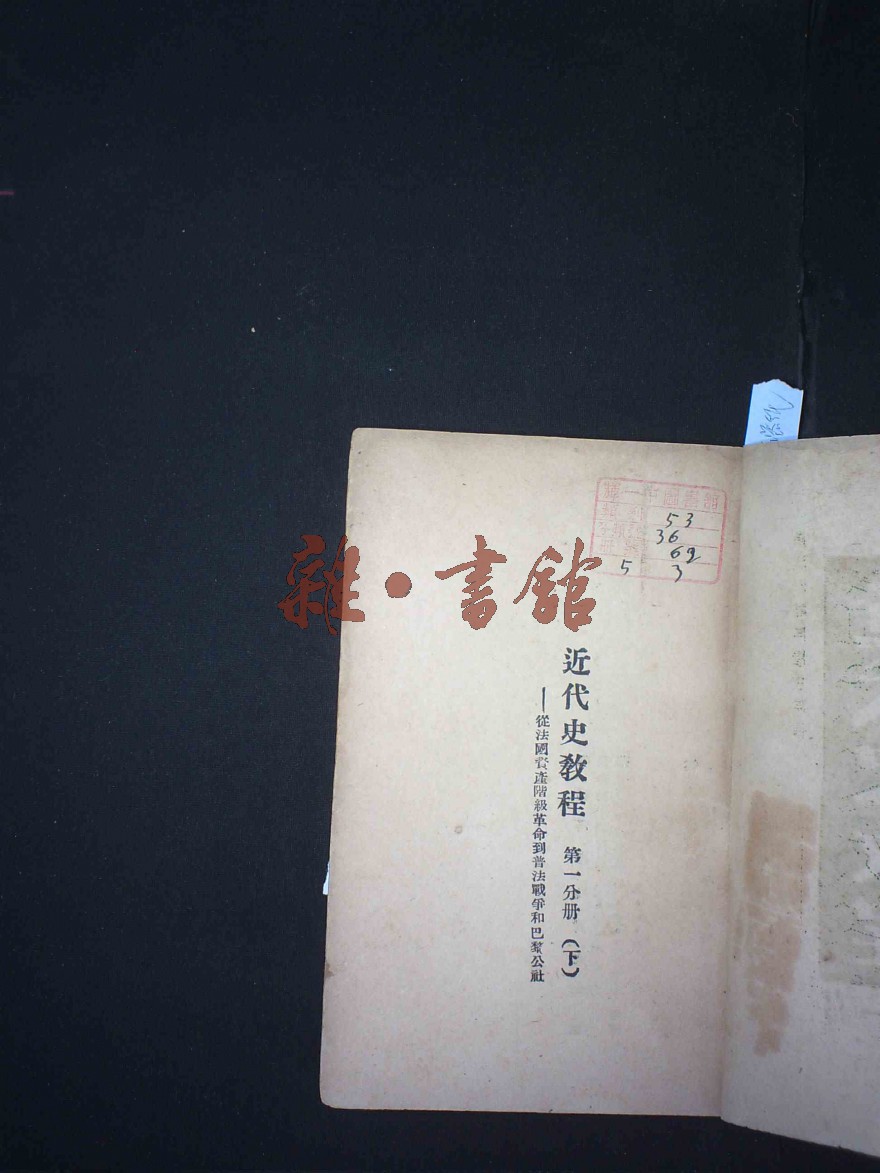 雜·書館
近代史教程 第一分册（下）
——從法國資產階級革命到普法戰爭和巴黎公社
53
36
62
5 3